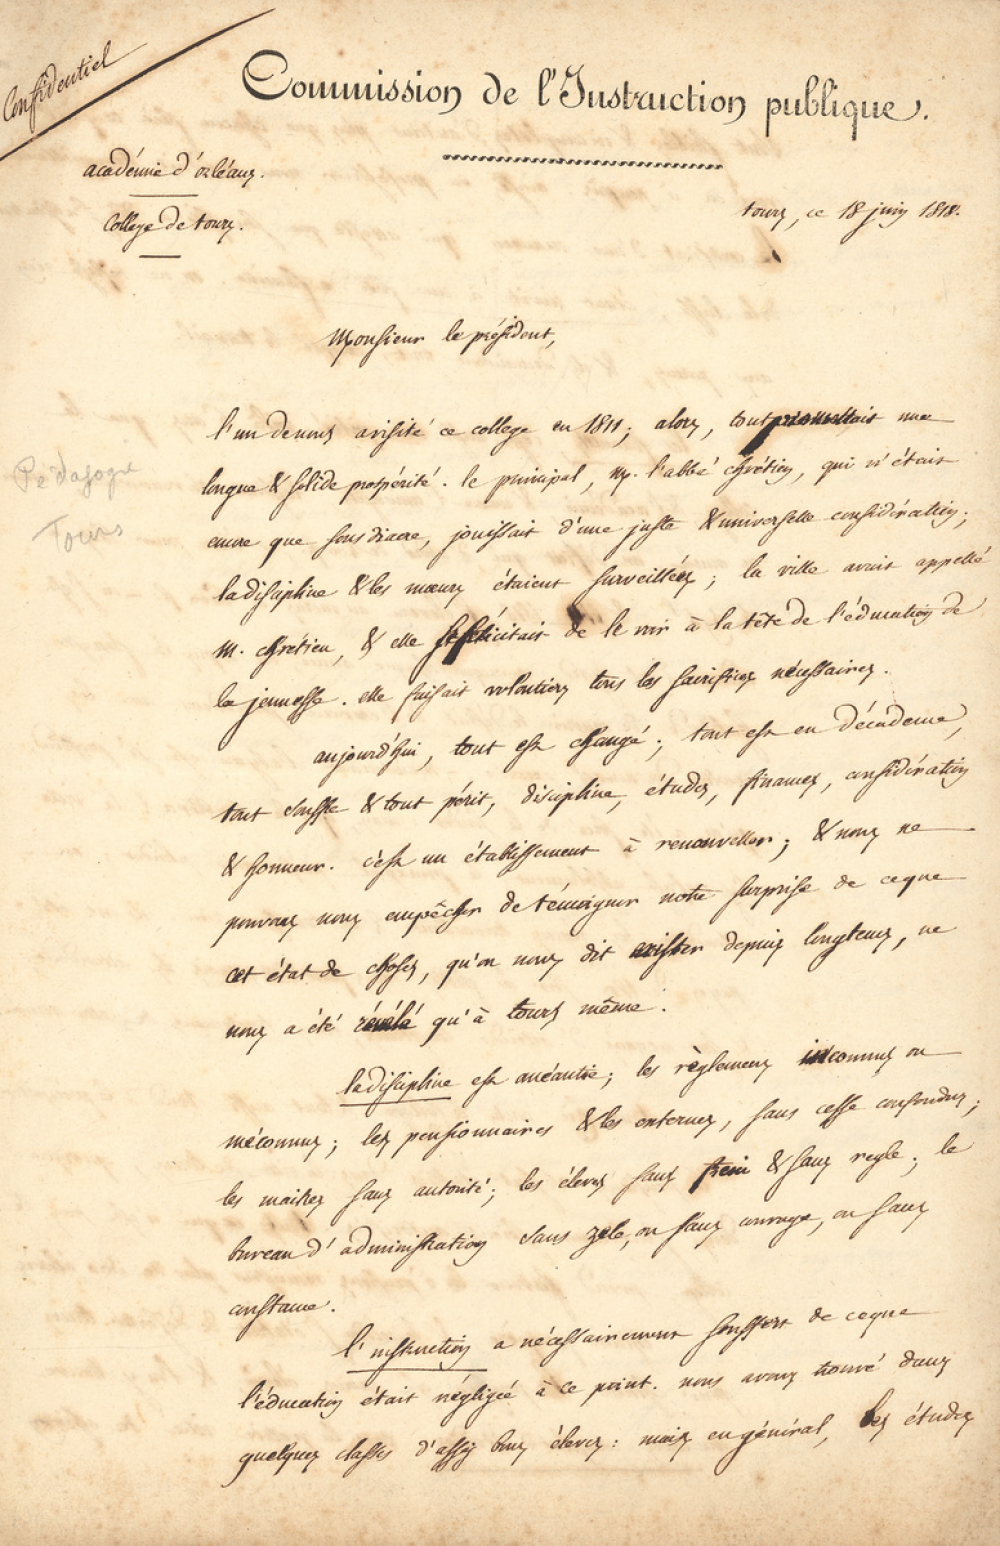 Confidentiel
Commission de l'Instruction publique.
académie d'orléans.
College de tours.
tours, ce 18 juin 1818.
Monsieur le président,
l'un de nous a visité ce college en 1811; alors, tout promettait une
Pédagogie
longue & solide prospérité. le principal, M. l'abbé chrétien, qui n'était
Tours
encore que sousdiacre, jouissait d'une juste & universelle considération;
la discipline & les mœurs étaient surveillées; la ville avait appellé
M. chrétien, & elle se félicitait de le voir à la tête de l'éducation de
la jeunesse. elle faisait volontiers tous les sacrifices nécessaires.
aujourd'hui, tout est changé; tout est en décadence,
tout souffre & tout périt, discipline, études, finances, considération
& honneur. c'est un établissement à renouveller; & nous ne
pouvons nous empêcher de témoigner notre surprise de ce que
cet état de choses, qu'on nous dit exister depuis longtems, ne
nous a été révélé qu'à tours même.
la discipline est anéantie; les règlemens inconnus ou
méconnus; les pensionnaires & les externes, sans cesse confondus;
les maitres sans autorité; les éleves sans frein & sans regle; le
bureau d'administration sans zele, ou sans courage, ou sans
constance.
l'instruction a nécessairement souffert de ce que
l'éducation était négligée à ce point. nous avons trouvé dans
quelques classes d'assez bons éleves: mais en général, les études